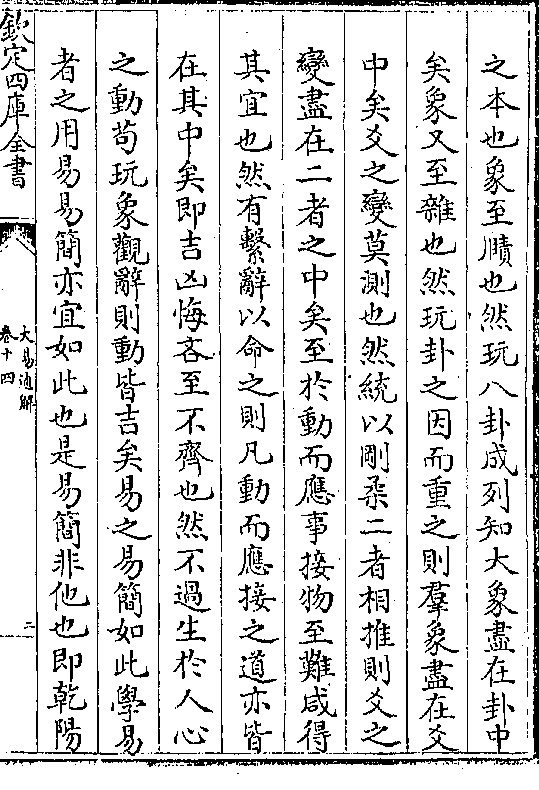 之本也象至賾也然玩八卦成列知大象盡在卦中
矣象又至雜也然玩卦之因而重之則羣象盡在爻
中矣爻之變莫測也然統以剛柔二者相推則爻之
變盡在二者之中矣至於動而應事接物至難咸得
其宜也然有繫辭以命之則凡動而應接之道亦皆
在其中矣即吉凶悔吝至不齊也然不過生於人心
之動苟玩象觀辭則動皆吉矣易之易簡如此學易
者之用易易簡亦宜如此也是易簡非他也即乾陽
欽定四庫全書
大易通解
卷十四
二